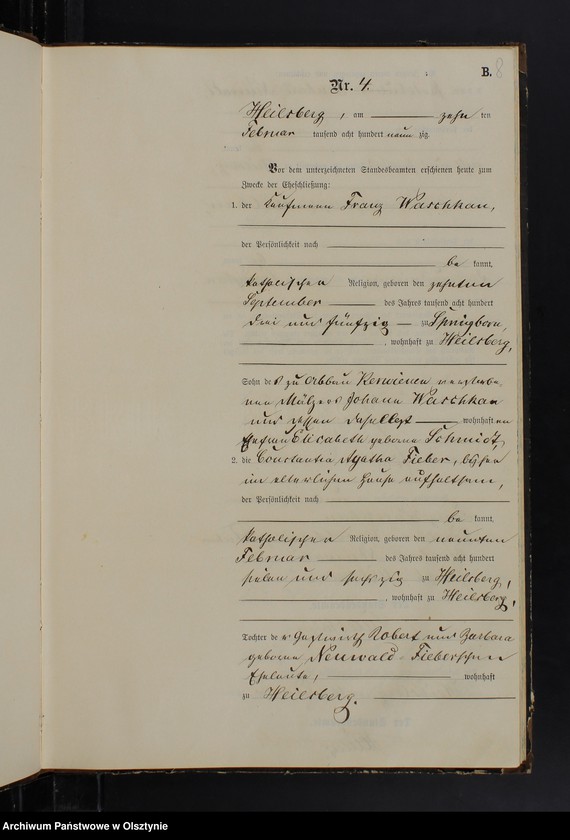 B. 8
Nr. 4.
Heilsberg, am zehn ten
Februar tausend acht hundert neun zig.
Vor dem unterzeichneten Standesbeamten erschienen heute zum
Zwecke der Eheschließung:
1. der Kaufmann Franz Waschkau,
der Persönlichkeit nach
be kannt,
katholischen Religion, geboren den zehnten
September des Jahres tausend acht hundert
drei und fünfzig zu Springborn,
, wohnhaft zu Heilsberg,
Sohn des zu Abbau Kerwienen verstorbe-
nen Mälzers Johann Waschkau
und dessen daselbst wohnhaften
Ehefrau Elisabeth geborne Schmidt,
2. die Constantia Agatha Fieber, bisher
im elterlichen Hause aufhaltsam,
der Persönlichkeit nach
be kannt,
katholischen Religion, geboren den neunten
Februar des Jahres tausend acht hundert
sieben und sechszig zu Heilsberg,
, wohnhaft zu Heilsberg,
Tochter der Gastwirth Robert und Barbara
geborne Neuwald-Fieberschen
Eheleute, wohnhaft
zu Heilsberg.
Archiwum Państwowe w Olsztynie